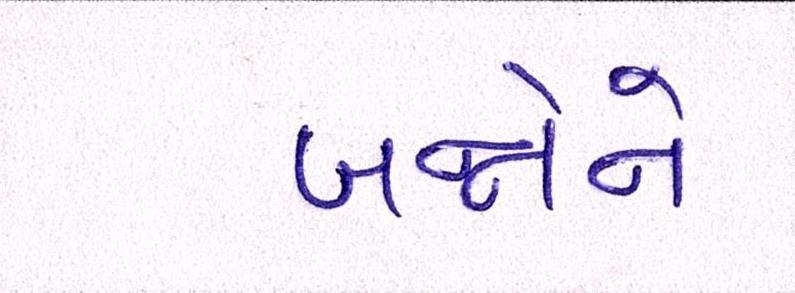 બન્નેને